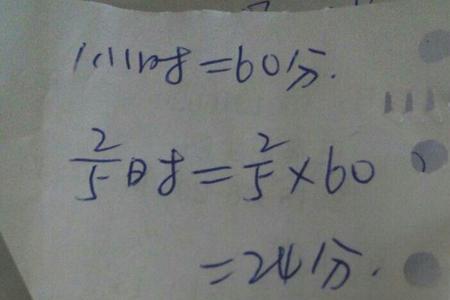 1小时=60分.
2/5时=2/5×60
=24分.